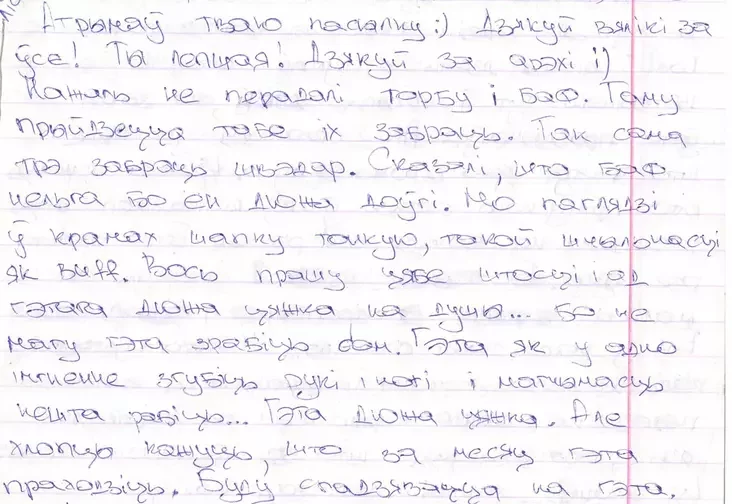 Атрымаў тваю пасылку:) Дзякуй вялікі за
ўсе! Ты лепшая! Дзякуй за арэхі :)
Нажаль не перадалі торбу і баф. Таму
прыйдзецца табе іх забраць. Так сама
трэ забраць швэдар. Сказалі, што баф
нельга бо ён дюжа доўгі. Мо паглядзі
ў крамах шапку тонкую, такой шчыльнасці
як Buff. Вось прашу цябе штосці і ад
гэтага дюжа цяжка на душы... Бо не
магу гэта зрабіць сам. Гэта як у адно
імгненне згубіць рукі і ногі і магчымасць
нешта рабіць... Гэта дюжа цяжка. Але
хлопцы кажуць, што за месяц гэта
праходзіць. Буду спадзявацца на гэта.